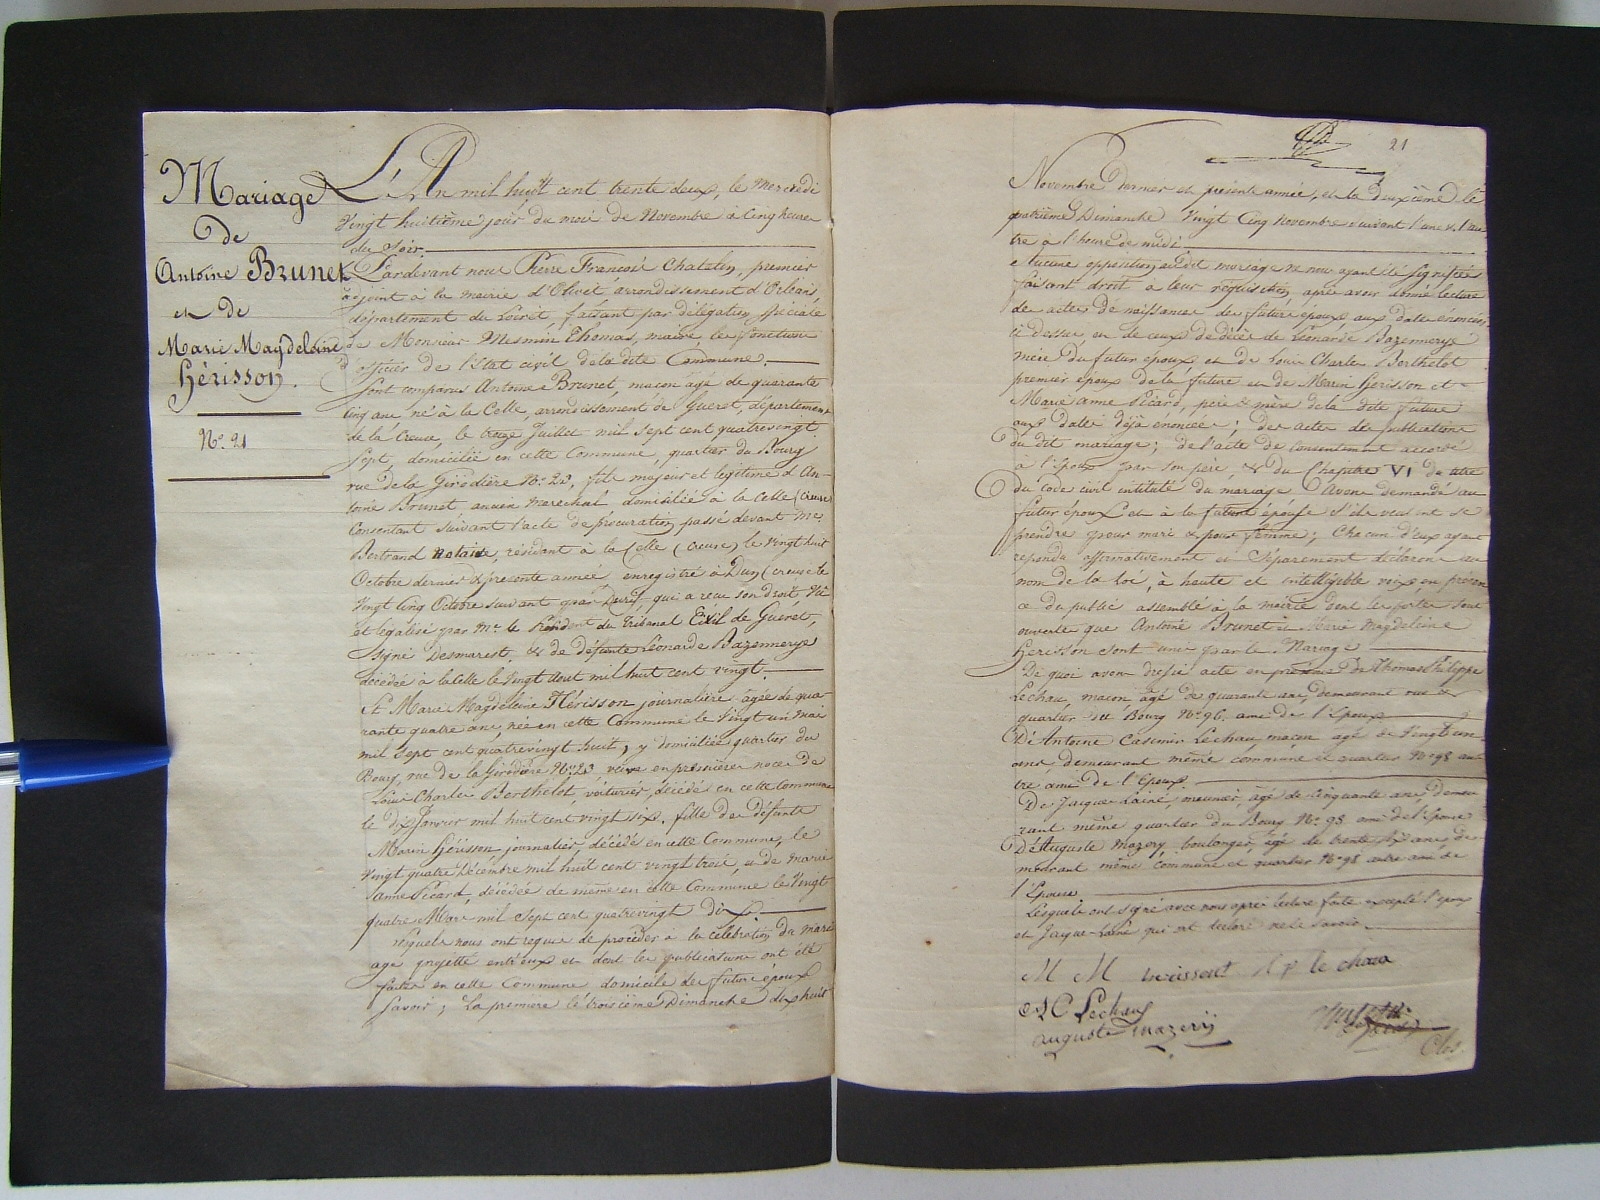 Mariage
de
Antoine Brunet
et de
Marie Magdeleine
Hérisson.
N.° 21
L'An mil huit cent trente deux, le Mercredi
Vingt huitième jour du mois de Novembre à cinq heures
du soir.
Pardevant nous Pierre François Chatelin, premier
adjoint à la mairie d'Olivet arrondissement d'Orléans,
département du Loiret, faisant par délégation spéciale
de Monsieur Mesmin Thomas, maire, les fonctions
d'officier de l'Etat civil de la dite Commune.
Sont comparus Antoine Brunet, maçon âgé de quarante
cinq ans né à la Celle, arrondissement de Gueret, département
de la Creuse, le treize Juillet mil sept cent quatrevingt
sept, domicilié en cette Commune, quartier du Bourg
rue de la Girodière N.° 23, fils majeur et légitime d'An-
toine Brunet ancien marechal domicilié à la Celle (Creuse)
Consentant suivant l'acte de procuration passé devant Me.
Bertrand Notaire, résidant à la Celle (Creuse) le vingt huit
Octobre dernier & présente année, enregistré à Dun (Creuse) le
Vingt cinq Octobre suivant par qui a recu son droit
et légalisé par Mr. le Président du Tribunal Civil de Guéret,
signé Desmarest, & de défunte Léonarde Bazennerye
décédée à la Celle le vingt Aout mil huit cent vingt.
Et Marie Magdeleine Hérisson journalière âgée de qua-
rante quatre ans, née en cette Commune le Vingt un mai
mil sept cent quatrevingt huit, y domiciliée quartier du
Bourg, rue de la Girodière N.° 23, veuve en premières noces de
Louis Charles Berthelot, voiturier, décédé en cette Commune
le dix Janvier mil huit cent vingt six. fille de défunts
Marin Hérisson journalier, décédé en cette Commune, le
vingt quatre Décembre mil huit cent vingt trois, & de Marie
Anne Picard, décédée de même en cette Commune le Vingt
quatre Mars mil sept cent quatrevingt dix.
Lesquels nous ont requis de procéder à la célébration du mari-
age projetté entr'eux et dont les publications ont été
faites en cette Commune domicile des futurs époux
Savoir; La première le troisième Dimanche dix huit
21
Novembre dernier et présente année, et la deuxième le
quatrième Dimanche Vingt Cinq Novembre suivant l'une & l'au-
tre à l'heure de midi
Aucune opposition audit mariage ne nous ayant été signifiée
faisant droit à leur réquisition, après avoir donné lecture
des actes de naissances des futurs époux aux dates énoncées
ci dessus, et de ceux de décès de Léonarde Bazennerye
mère du futur époux, et de Louis Charles Berthelot
premier époux de la future et de Marin Hérisson et
Marie Anne Picard, père & mère de la dite future
aux dates déjà énoncées; des actes de publications
du dit mariage; de l'acte de consentement accordé
à l'époux par son père & du Chapitre VI du titre
du code civil intitulé du mariage. Avons demandé au
futur époux et à la future épouse s'ils veulent se
prendre pour mari & pour femme; Chacun d'eux ayant
répondu affirmativement et séparément déclarons au
nom de la loi, à haute et intelligible voix, en présen-
ce du public assemblé à la mairie dont les portes sont
ouvertes que Antoine Brunet & Marie Magdeleine
Hérisson sont unis par le Mariage
De quoi avons dressé acte en présence de Thomas Philippe
Lechau, maçon, âgé de quarante ans, demeurant rue &
quartier du Bourg N.° 96. ami de l'Epoux
D'Antoine Casimir Lechau, maçon agé de Vingt un
ans, demeurant même commune & quartier N.° 98 au-
tre ami de l'Epoux.
De Jacques Lainé, meunier, âgé de cinquante ans demeu-
rant même quartier du Bourg N.° 98 ami de l'Epouse
D'Auguste Mazery boulanger, âgé de trente six ans de-
meurant même commune et quartier N.° 98 autre ami de
l'Epouse.
Lesquels ont signé avec nous après lecture faite excepté l'époux
et Jacques Lainé qui ont déclaré ne le savoir.
M M herissont t p le chau
A C Lechau
auguste mazerij